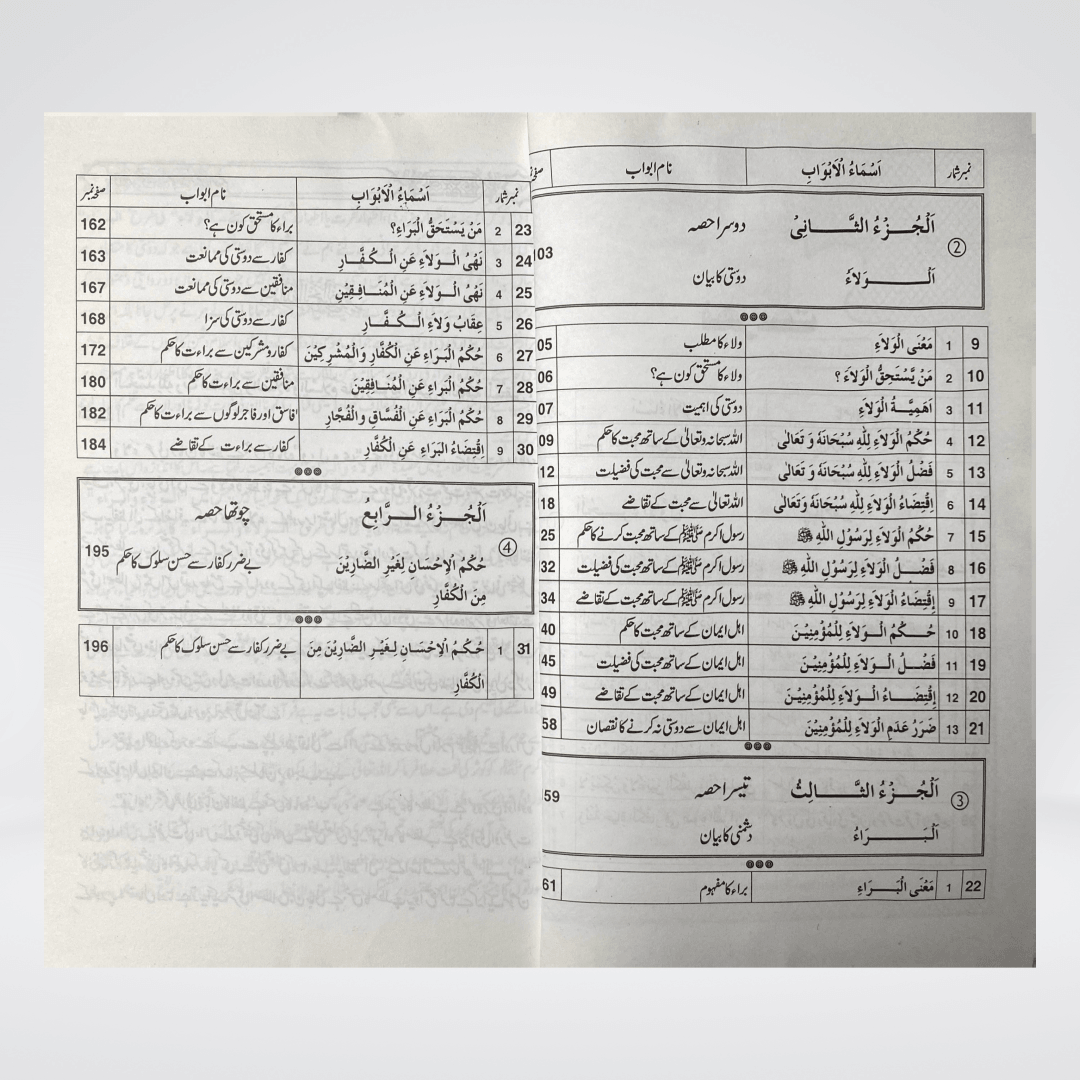 نمبر شمار اَسْمَاءُ الْاَبْوَابِ نام ابواب
② اَلْجُـزْءُ الثَّـــانِیْ دوسرا حصہ 03
اَلْــــوَلَاءُ دوستی کا بیان
9 1 مَعْنَی الْوَلَاءِ ولاء کا مطلب 05
10 2 مَنْ یَّسْتَحِقُّ الْوَلَاءَ ؟ ولاء کا مستحق کون ہے؟ 06
11 3 اَهَمِیَّـةُ الْوَلَاءِ دوستی کی اہمیت 07
12 4 حُکْمُ الْوَلَاءِ لِلّٰهِ سُبْحَانَهٗ وَ تَعَالٰی اللہ سبحانہ وتعالیٰ کے ساتھ محبت کا حکم 09
13 5 فَضْلُ الْوَلَاءِ لِلّٰهِ سُبْحَانَهٗ وَ تَعَالٰی اللہ سبحانہ وتعالیٰ سے محبت کی فضیلت 12
14 6 اِقْتِضَاءُ الْوَلَاءِ لِلّٰهِ سُبْحَانَهٗ وَتَعَالٰی اللہ تعالیٰ سے محبت کے تقاضے 18
15 7 حُکْمُ الْوَلَاءِ لِرَسُوْلِ اللّٰهِ ﷺ رسول اکرم ﷺ کے ساتھ محبت کرنے کا حکم 25
16 8 فَضْـلُ الْوَلَاءِ لِرَسُوْلِ اللّٰهِ ﷺ رسول اکرم ﷺ کے ساتھ محبت کی فضیلت 32
17 9 اِقْتِضَاءُ الْوَلَاءِ لِرَسُوْلِ اللّٰهِ ﷺ رسول اکرم ﷺ کے ساتھ محبت کے تقاضے 34
18 10 حُـــکْمُ الْـوَلَاءِ لِلْمُؤْمِنِیْنَ اہل ایمان کے ساتھ محبت کا حکم 40
19 11 فَضْـلُ الْـوَلَاءِ لِلْمُؤْمِنِیْنَ اہل ایمان کے ساتھ محبت کی فضیلت 45
20 12 اِقْتِضَـاءُ الْـوَلَاءِ لِلْمُؤْمِنِیْنَ اہل ایمان کے ساتھ محبت کے تقاضے 49
21 13 ضَرَرُ عَدَمِ الْوَلَاءِ لِلْمُؤْمِنِیْنَ اہل ایمان سے دوستی نہ کرنے کا نقصان 58
③ اَلْجُــزْءُ الثَّـــالِثُ تیسرا حصہ 59
اَلْبَـــــرَاءُ دشمنی کا بیان
22 1 مَعْنَی الْبَـــرَاءِ براء کا مفہوم 61
نمبر شمار اَسْمَاءُ الْاَبْوَابِ نام ابواب صفحہ نمبر
23 2 مَنْ یَسْتَحِقُّ الْبَرَاءَ؟ براء کا مستحق کون ہے؟ 162
24 3 نَهْیُ الْـوَلَاءِ عَنِ الْـکُفَّـارِ کفار سے دوستی کی ممانعت 163
25 4 نَهْیُ الْـوَلَاءِ عَنِ الْمُنَـافِـقِیْنِ منافقین سے دوستی کی ممانعت 167
26 5 عِقَابُ وَلَاءِ الْـکُفَّـارِ کفار سے دوستی کی سزا 168
27 6 حُکْمُ الْبَرَاءِ عَنِ الْکُفَّارِ وَالْمُشْرِکِیْنَ کفار و مشرکین سے براءت کا حکم 172
28 7 حُکْمُ الْبَرَاءِ عَنِ الْمُنَافِقِیْنَ منافقین سے براءت کا حکم 180
29 8 حُکْمُ الْبَرَاءِ عَنِ الْفُسَّاقِ وَالْفُجَّارِ فاسق اور فاجر لوگوں سے براءت کا حکم 182
30 9 اِقْتِضَاءُ الْبَرَاءِ عَنِ الْکُفَّارِ کفار سے براءت کے تقاضے 184
④ اَلْجُــزْءُ الــرَّابِعُ چوتھا حصہ
حُکْمُ الْاِحْسَانِ لِغَیْرِ الضَّارِیْنَ بے ضرر کفار سے حسن سلوک کا حکم 195
مِنَ الْکُفَّارِ
31 1 حُـکْـمُ الْاِحْسَانِ لِـغَیْرِ الضَّارِیْنَ مِنَ بے ضرر کفار سے حسن سلوک کا حکم 196
الْکُفَّارِ